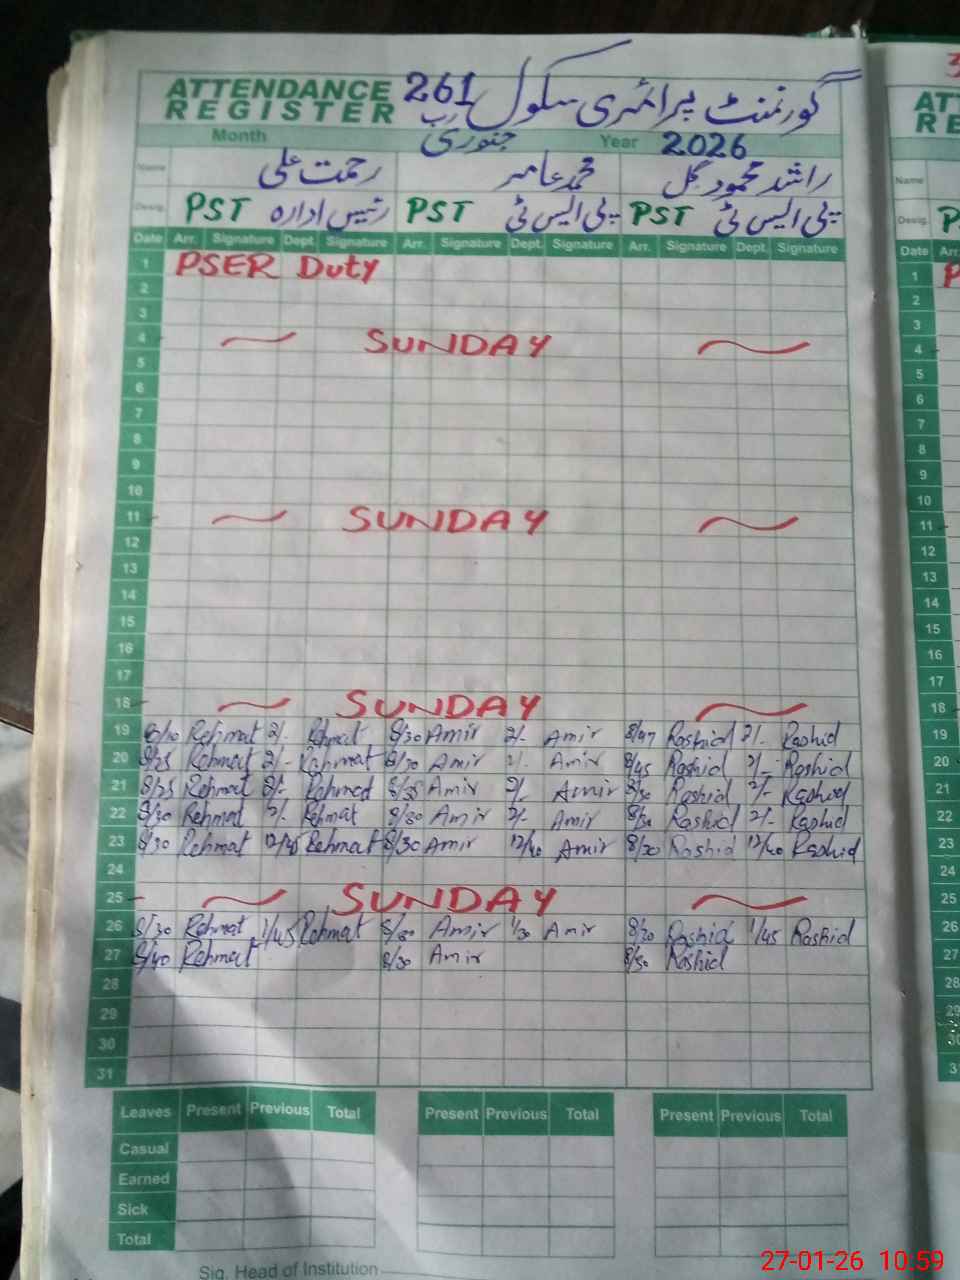 ATTENDANCE REGISTER 261 رب گورنمنٹ پرائمری سکول
Month جنوری Year 2026
Name رحمت علی محمد عامر راشد محمود گل
Desig. PST رئیس ادارہ PST پی ایس ٹی PST پی ایس ٹی
Date Arr. Signature Dept. Signature Arr. Signature Dept. Signature Arr. Signature Dept. Signature
1 PSER Duty
2
3
4 SUNDAY
5
6
7
8
9
10
11 SUNDAY
12
13
14
15
16
17
18 SUNDAY
19 Rehmat 2/- Rehmat 8/30 Amir 2/- Amir Rashid 2/- Rashid
20 8/25 Rehmat 2/- Rahmat Amir Amir 8/45 Rashid 2/- Rashid
21 8/25 Rehmat 2/- Rehmat Amir 2/- Amir Rashid 2/- Rashid
22 8/30 Rehmat 2/- Rehmat 8/30 Amir 2/- Amir 8/30 Rashid 2/- Rashid
23 8/30 Rehmat 12/45 Rehmat 8/30 Amir 12/40 Amir 8/30 Rashid 12/40 Rashid
24
25 SUNDAY
26 8/30 Rehmat 1/45 Rehmat 8/30 Amir 1/30 Amir 8/30 Rashid 1/45 Rashid
27 8/40 Rehmat 8/30 Amir 8/50 Rashid
28
29
30
31
Leaves Present Previous Total Present Previous Total Present Previous Total
Casual
Earned
Sick
Total
Sig. Head of Institution
ATT
RE
Name
Desig. P
Date Arr.
1 P
2
3
4
5
6
7
8
9
10
11
12
13
14
15
16
17
18
19
20
21
22
23
24
25
26
27
28
29
30
31
27-01-26 10.59